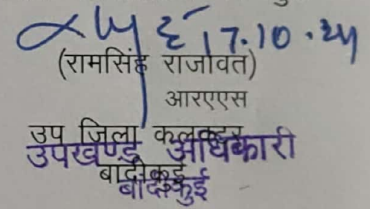 17.10.24
(रामसिंह राजावत)
आरएएस
उप जिला कलक्टर
उपखण्ड अधिकारी
बांदीकुई
बांदीकुई